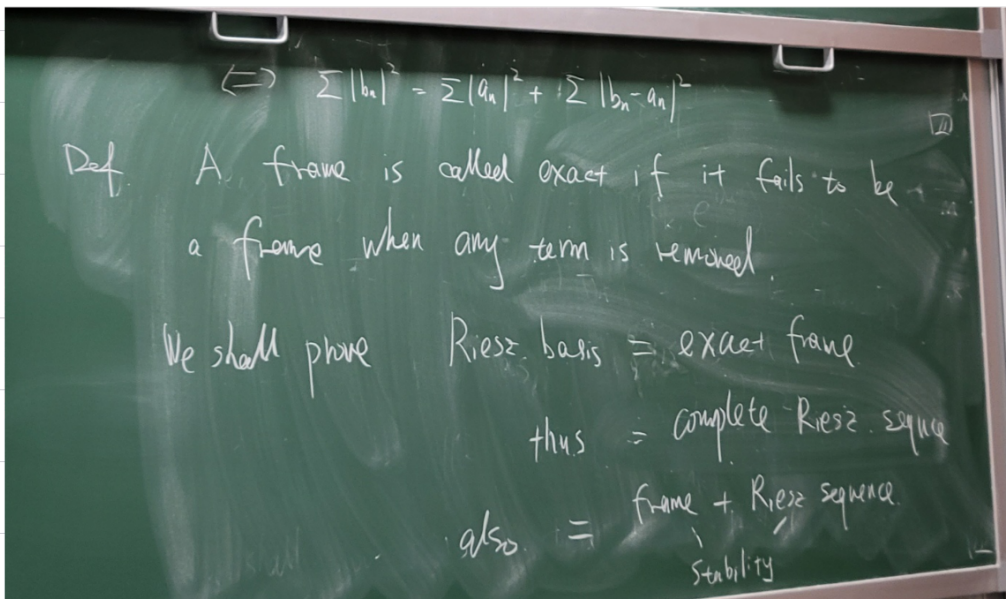 ⇔ Σ|bₙ|² = Σ|aₙ|² + Σ|bₙ-aₙ|²
Def. A frame is called exact if it fails to be
a frame when any term is removed.
We shall prove Riesz basis = exact frame.
thus = complete Riesz sequnce
also = frame + Riesz sequence.
Stability